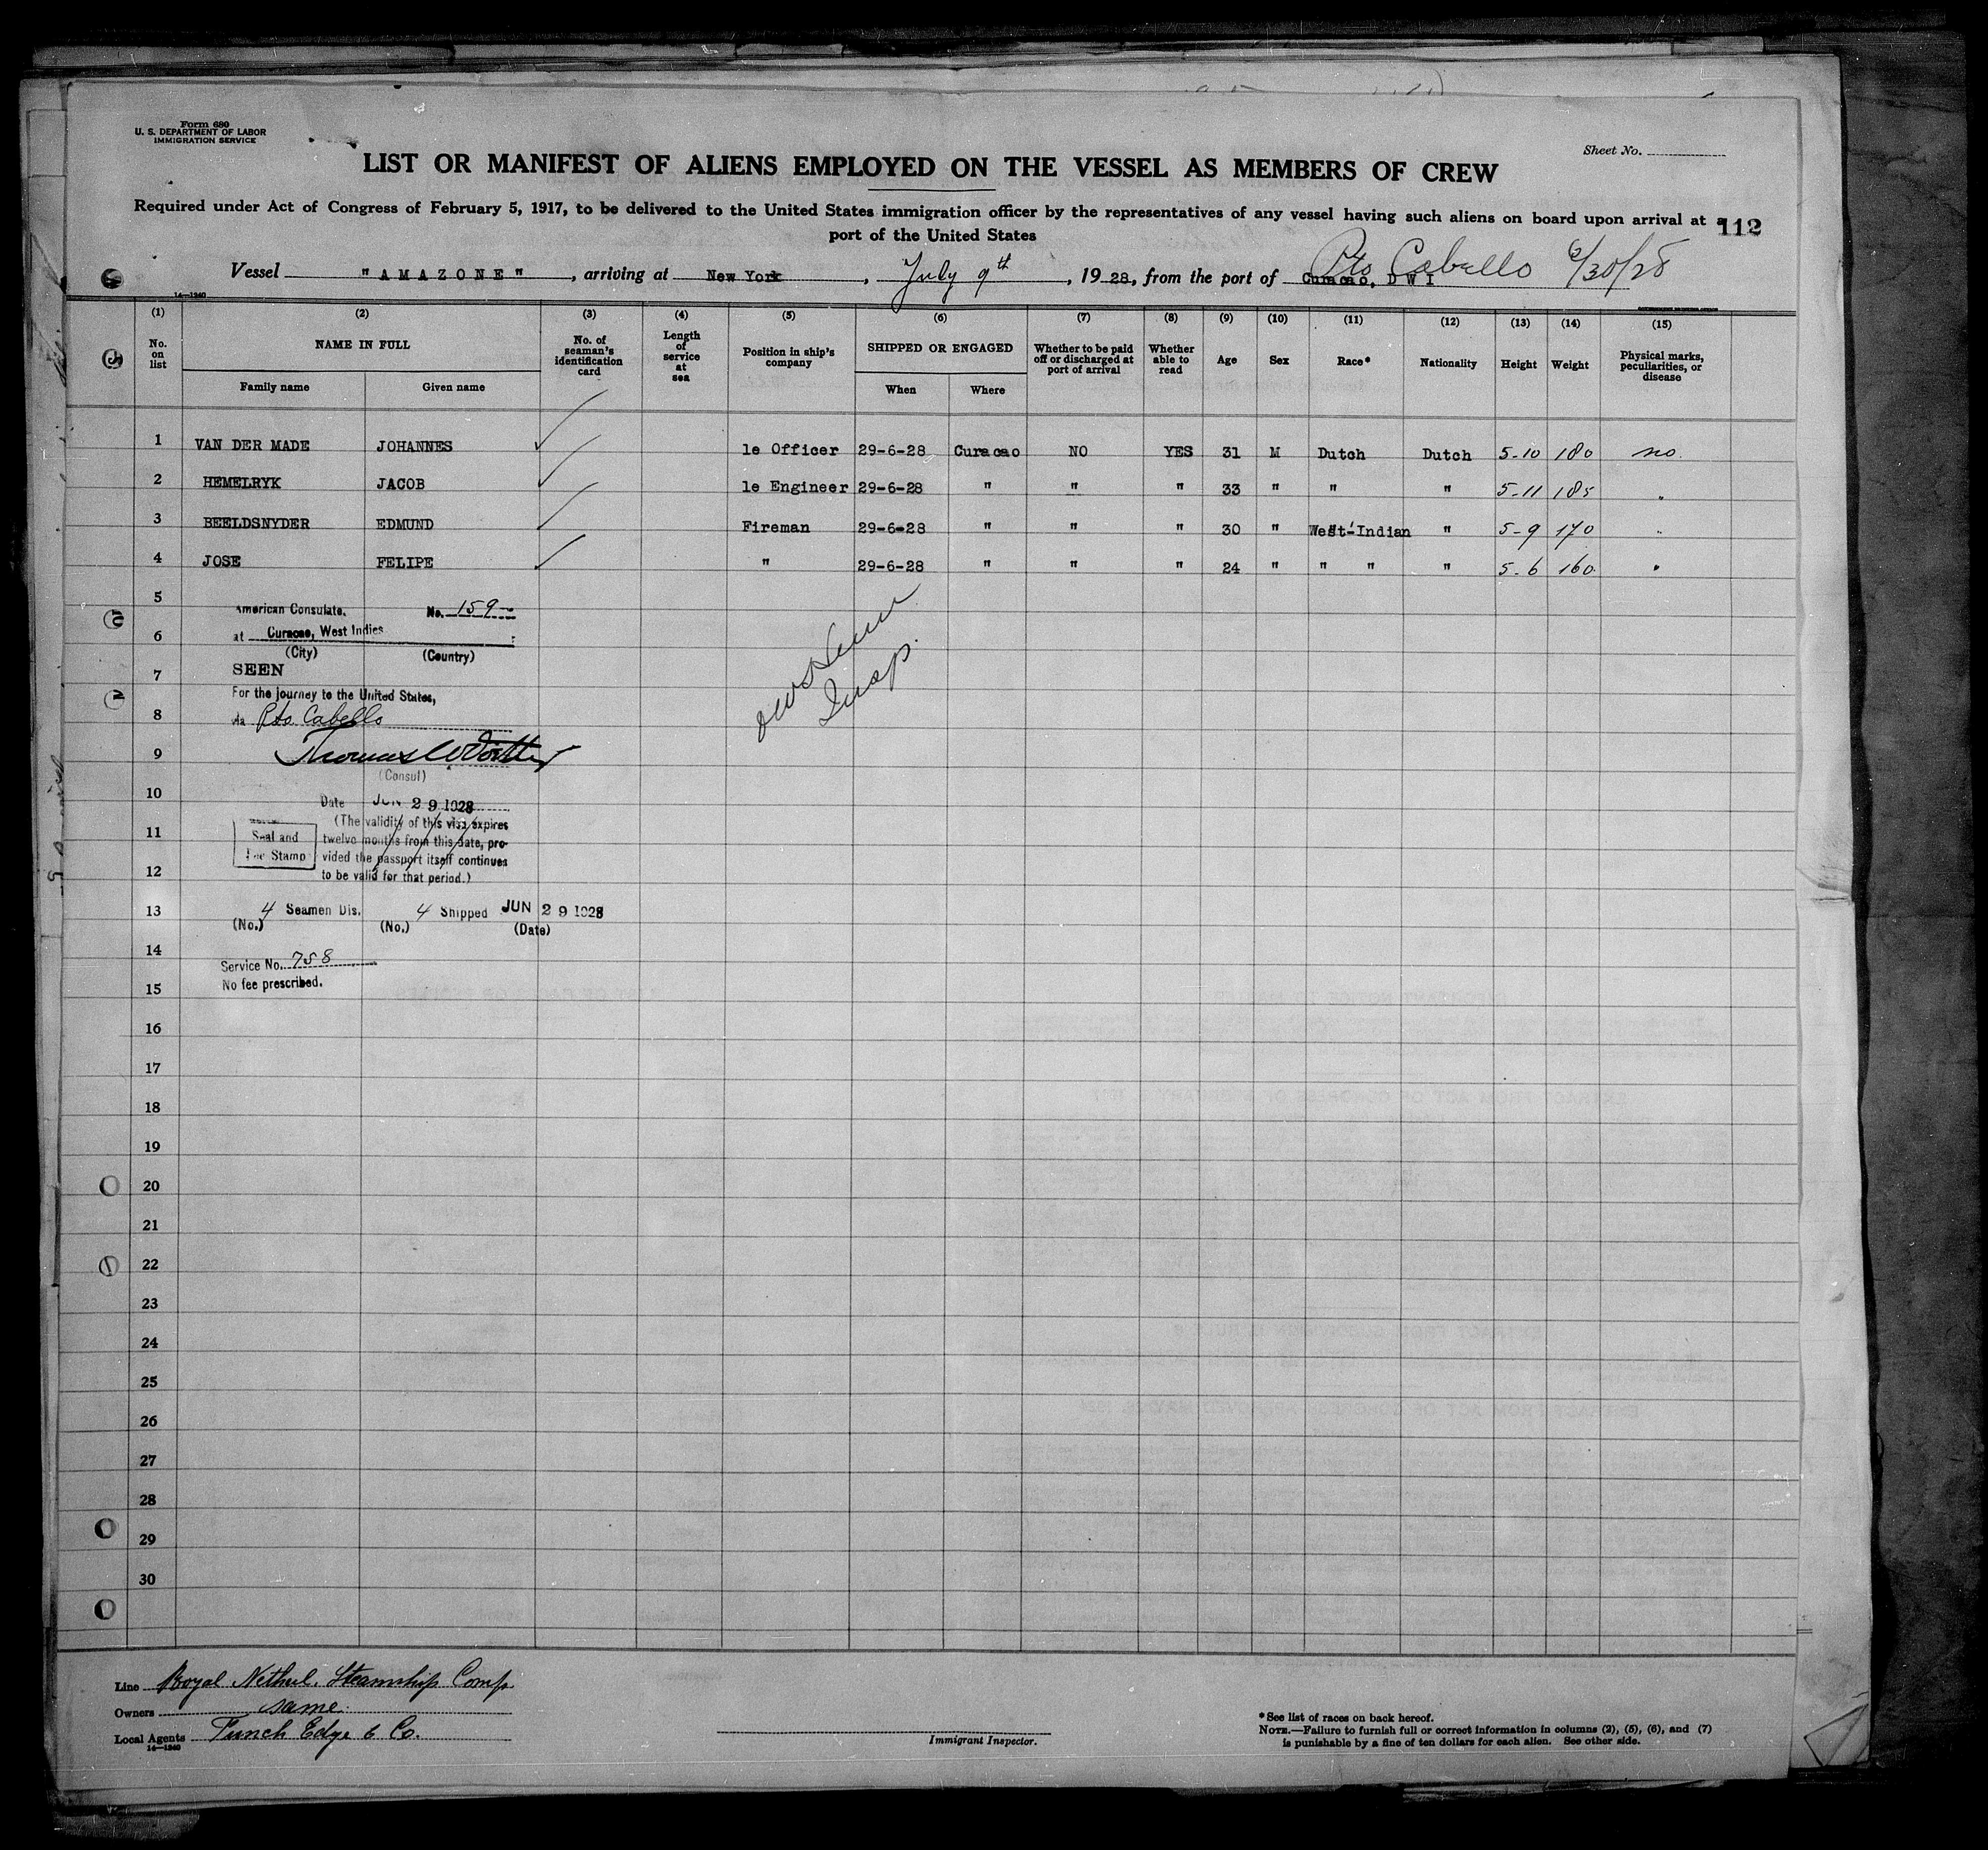 Form 680
U. S. DEPARTMENT OF LABOR
IMMIGRATION SERVICE
Sheet No.
LIST OR MANIFEST OF ALIENS EMPLOYED ON THE VESSEL AS MEMBERS OF CREW
Required under Act of Congress of February 5, 1917, to be delivered to the United States immigration officer by the representatives of any vessel having such aliens on board upon arrival at a
port of the United States
112
Pto Cabello 6/30/28
Vessel "AMAZONE", arriving at New York, July 9th, 1928, from the port of Curacao, D W I
14—1240
(1) (2) (3) (4) (5) (6) (7) (8) (9) (10) (11) (12) (13) (14) (15)
No. on list NAME IN FULL No. of seaman's identification card Length of service at sea Position in ship's company SHIPPED OR ENGAGED Whether to be paid off or discharged at port of arrival Whether able to read Age Sex Race* Nationality Height Weight Physical marks, peculiarities, or disease
Family name Given name When Where
1 VAN DER MADE JOHANNES 1e Officer 29-6-28 Curacao NO YES 31 M Dutch Dutch 5-10 180 no.
2 HEMELRYK JACOB 1e Engineer 29-6-28 " " " 33 " " " 5-11 185 "
3 BEELDSNYDER EDMUND Fireman 29-6-28 " " " 30 " West-Indian " 5-9 170 "
4 JOSE FELIPE " 29-6-28 " " " 24 " " " " 5-6 160 "
5
American Consulate, No. 159
6
at Curacao, West Indies
(City) (Country)
7
SEEN
For the journey to the United States,
8
via Pto. Cabello
9
(Consul)
10
Date JUN 29 1928
(The validity of this visa expires
11
Seal and
Fee Stamp
twelve months from this date, pro-
vided the passport itself continues
12
to be valid for that period.)
13
4 Seamen Dis. 4 Shipped JUN 29 1928
(No.) (No.) (Date)
14
Service No. 758
15
No fee prescribed.
16
17
18
19
20
21
22
23
24
25
26
27
28
29
30
Line Royal Nethl. Steamship Comp
Owners same
Local Agents Funch Edye & Co.
14—1240
Immigrant Inspector.
* See list of races on back hereof.
NOTE.—Failure to furnish full or correct information in columns (2), (5), (6), and (7)
is punishable by a fine of ten dollars for each alien. See other side.